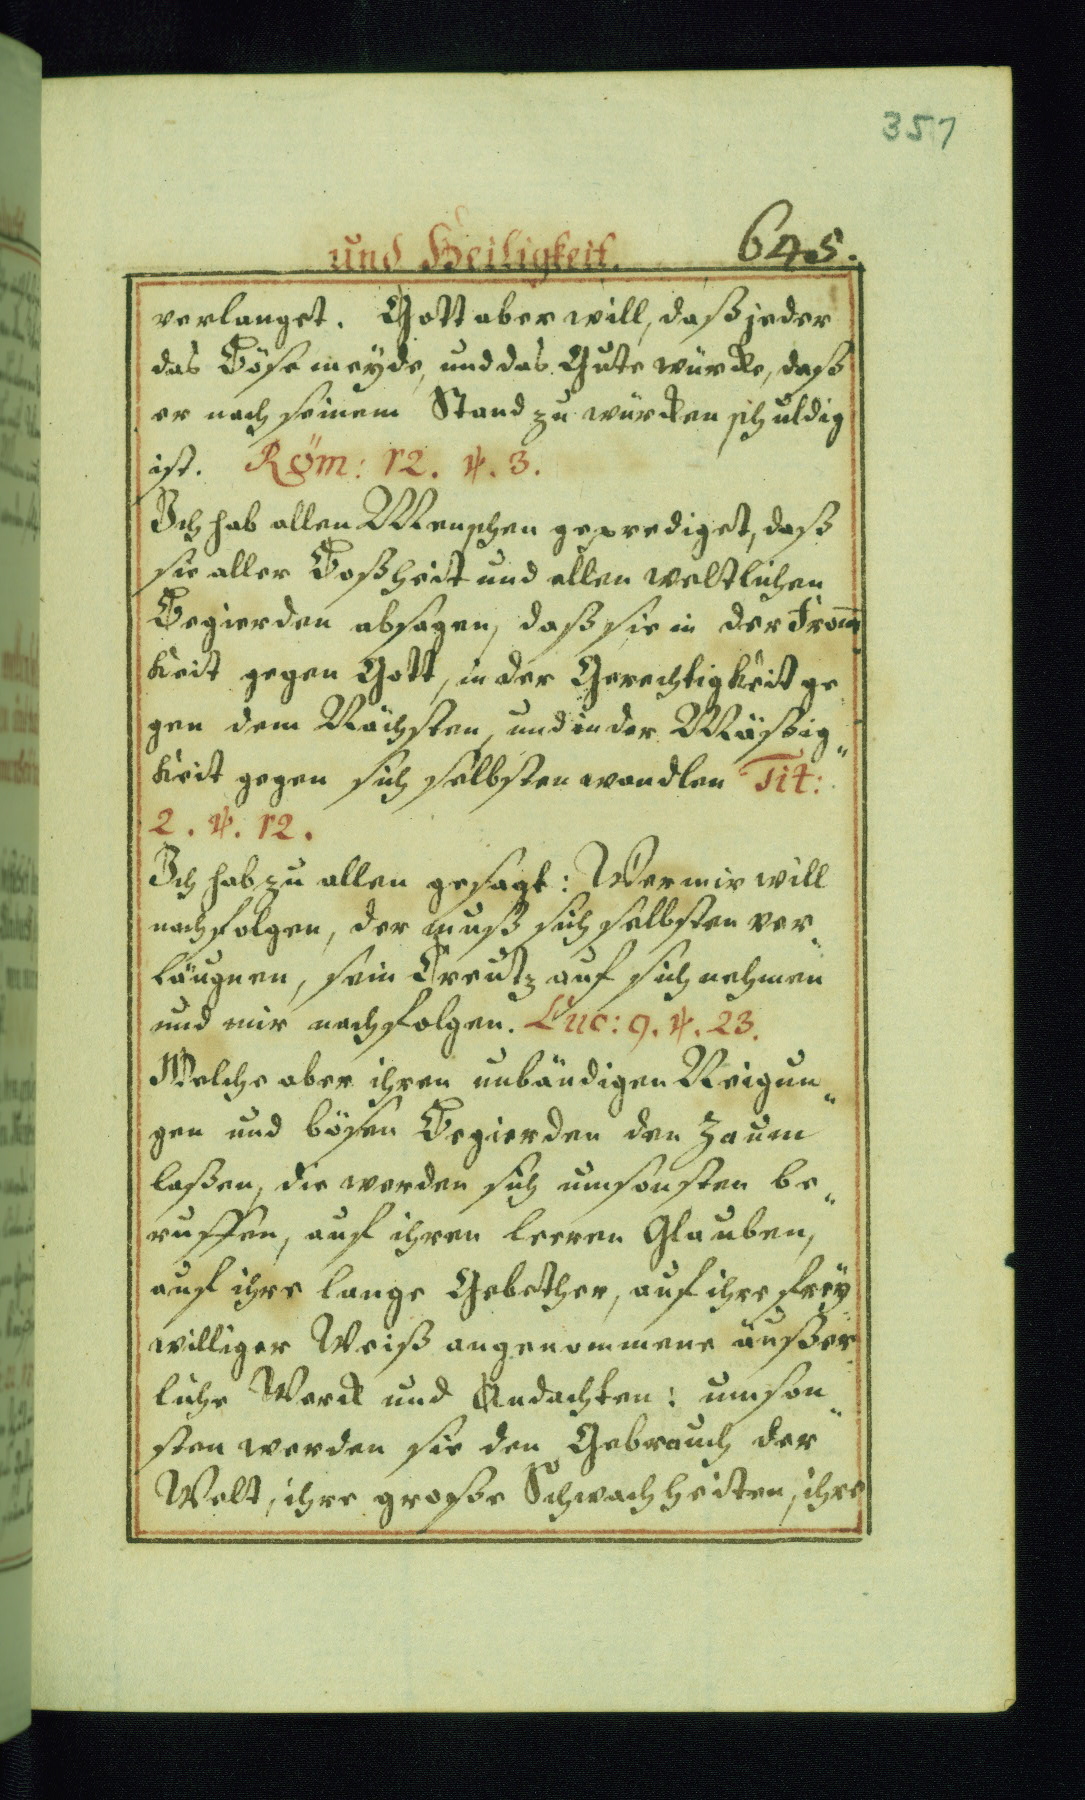 357
und Heiligkeit. 645.
verlanget. Gott aber will, daß jeder
das Böse meyde, und das Gute würcke, daß
er nach seinem Stand zu würcken schuldig
ist. Röm: 12. ℣. 3.
Ich hab allen Menschen geprediget, daß
sie aller Boßheit und allen weltlichen
Begierden absagen, daß sie in der From̄
keit gegen Gott, in der Gerechtigkeit ge
gen dem Nächsten, und in der Mäßig„
keit gegen sich selbsten wandlen Tit:
2. ℣. 12.
Ich hab zu allen gesagt: Wer mir will
nachfolgen, der muß sich selbsten ver„
läugnen, sein Creutz auf sich nehmen
und mir nachfolgen. Luc: 9. ℣. 23.
Welche aber ihren unbändigen Neigun„
gen und bösen Begierden den Zaum
laßen, die werden sich umsonsten be„
ruffen, auf ihren leeren Glauben,
auf ihre lange Gebether, auf ihre frey
williger Weiß angenommene äußer„
liche Werck und Andachten: umson„
sten werden sie den Gebrauch der
Welt, ihre große Schwachheiten, ihre